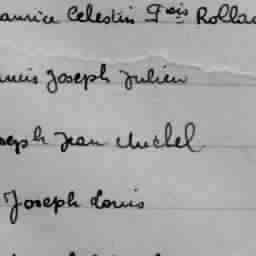 aurice Celestin Gois Rollac
ancis Joseph Julien
seph Jean Michel
Joseph Louis